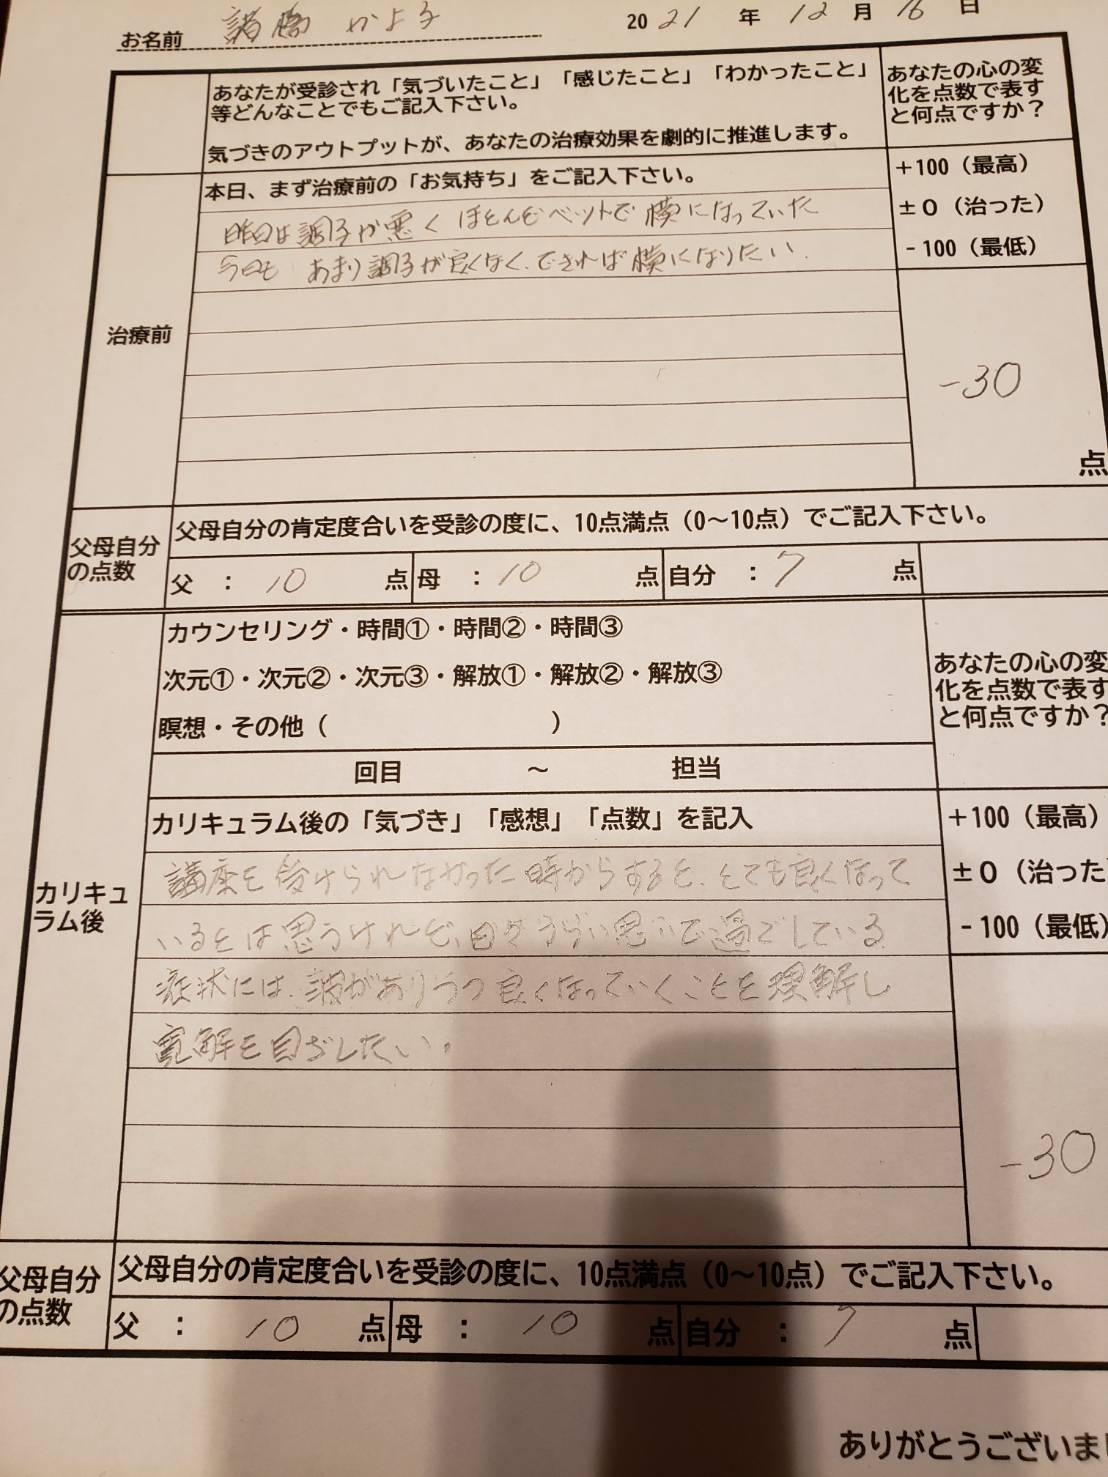 お名前 諸橋 かよ子 2021年 12月 16日
あなたが受診され「気づいたこと」「感じたこと」「わかったこと」
等どんなことでもご記入下さい。
気づきのアウトプットが、あなたの治療効果を劇的に推進します。
あなたの心の変
化を点数で表す
と何点ですか？
治療前
本日、まず治療前の「お気持ち」をご記入下さい。
昨日は調子が悪く ほとんどベットで横になっていた
今日も あまり調子が良くなく、できれば横になりたい.
+100（最高）
±0（治った）
-100（最低）
-30
点
父母自分
の点数
父母自分の肯定度合いを受診の度に、10点満点（0～10点）でご記入下さい。
父 ： 10 点 母 ： 10 点 自分 ： 7 点
カリキュ
ラム後
カウンセリング・時間①・時間②・時間③
次元①・次元②・次元③・解放①・解放②・解放③
瞑想・その他（ ）
回目 ～ 担当
あなたの心の変
化を点数で表す
と何点ですか？
カリキュラム後の「気づき」「感想」「点数」を記入
講座を受けられなかった時からすると、とても良くなって
いるとは思うけれど、日々つらい思いで過ごしている
症状には、波がありつつ良くなっていくことを理解し
寛解を目ざしたい。
+100（最高）
±0（治った
-100（最低）
-30
父母自分
の点数
父母自分の肯定度合いを受診の度に、10点満点（0～10点）でご記入下さい。
父 ： 10 点 母 ： 10 点 自分 ： 7 点
ありがとうございまし